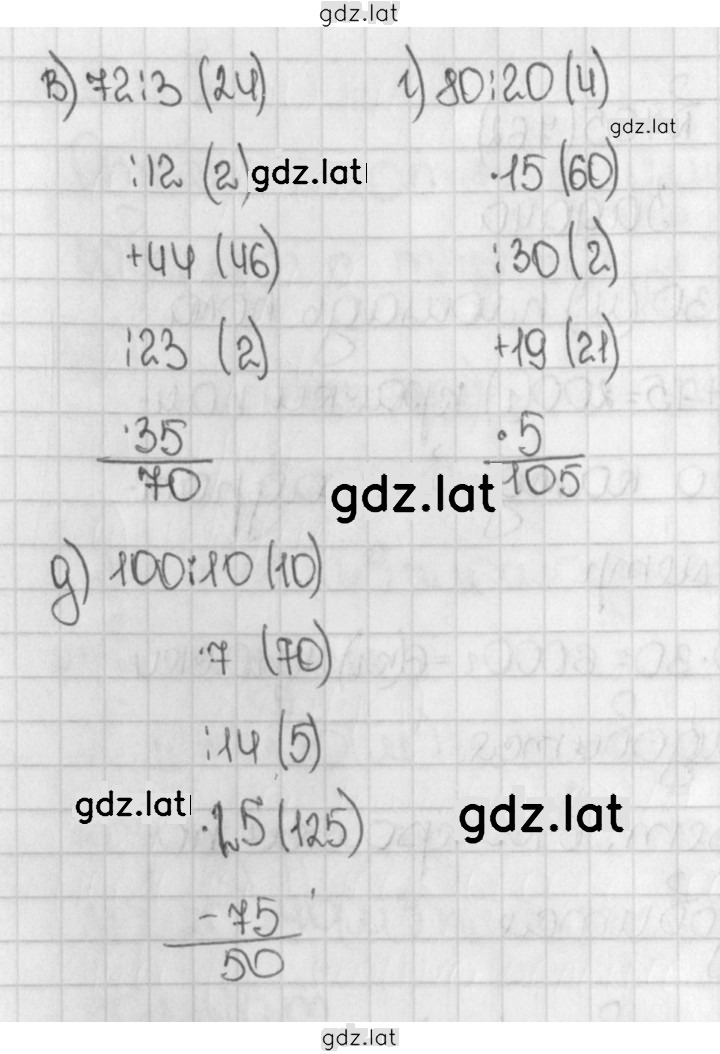 gdz.lat
в) 72:3 (24)
:12 (2)
+44 (46)
:23 (2)
·35
70
г) 80:20 (4)
·15 (60)
:30 (2)
+19 (21)
·5
105
gdz.lat
gdz.lat
gdz.lat
д) 100:10 (10)
·7 (70)
:14 (5)
·25 (125)
-75
50
gdz.lat
gdz.lat
gdz.lat